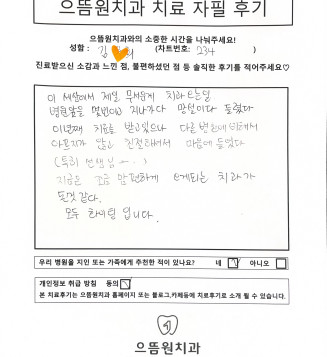 으뜸원치과 치료 자필 후기
으뜸원치과와의 소중한 시간을 나눠주세요!
성함 : 김 희 (차트번호: 234 )
진료받으신 소감과 느낀 점, 불편하셨던 점 등 솔직한 후기를 적어주세요♡
이 세상에서 제일 무서운게 치과 든데
병원앞을 몇번이나 지나가다 망설이다 들렸다
이년째 치료를 받고있으나 다른 병원에 비해서
아프지가 않고 친절해서 마음에 들었다
(특히 선생님 ~ . )
지금은 조금 맘 편하게 오게되는 치과가
된것 같다.
모두 화이팅 입니다.
우리 병원을 지인 또는 가족에게 추천한 적이 있나요? 네 아니오
개인정보 취급 방침 동의
본 치료후기는 으뜸원치과 홈페이지 또는 블로그,카페등에 치료후기로 소개 될 수 있습니다.
으뜸원치과